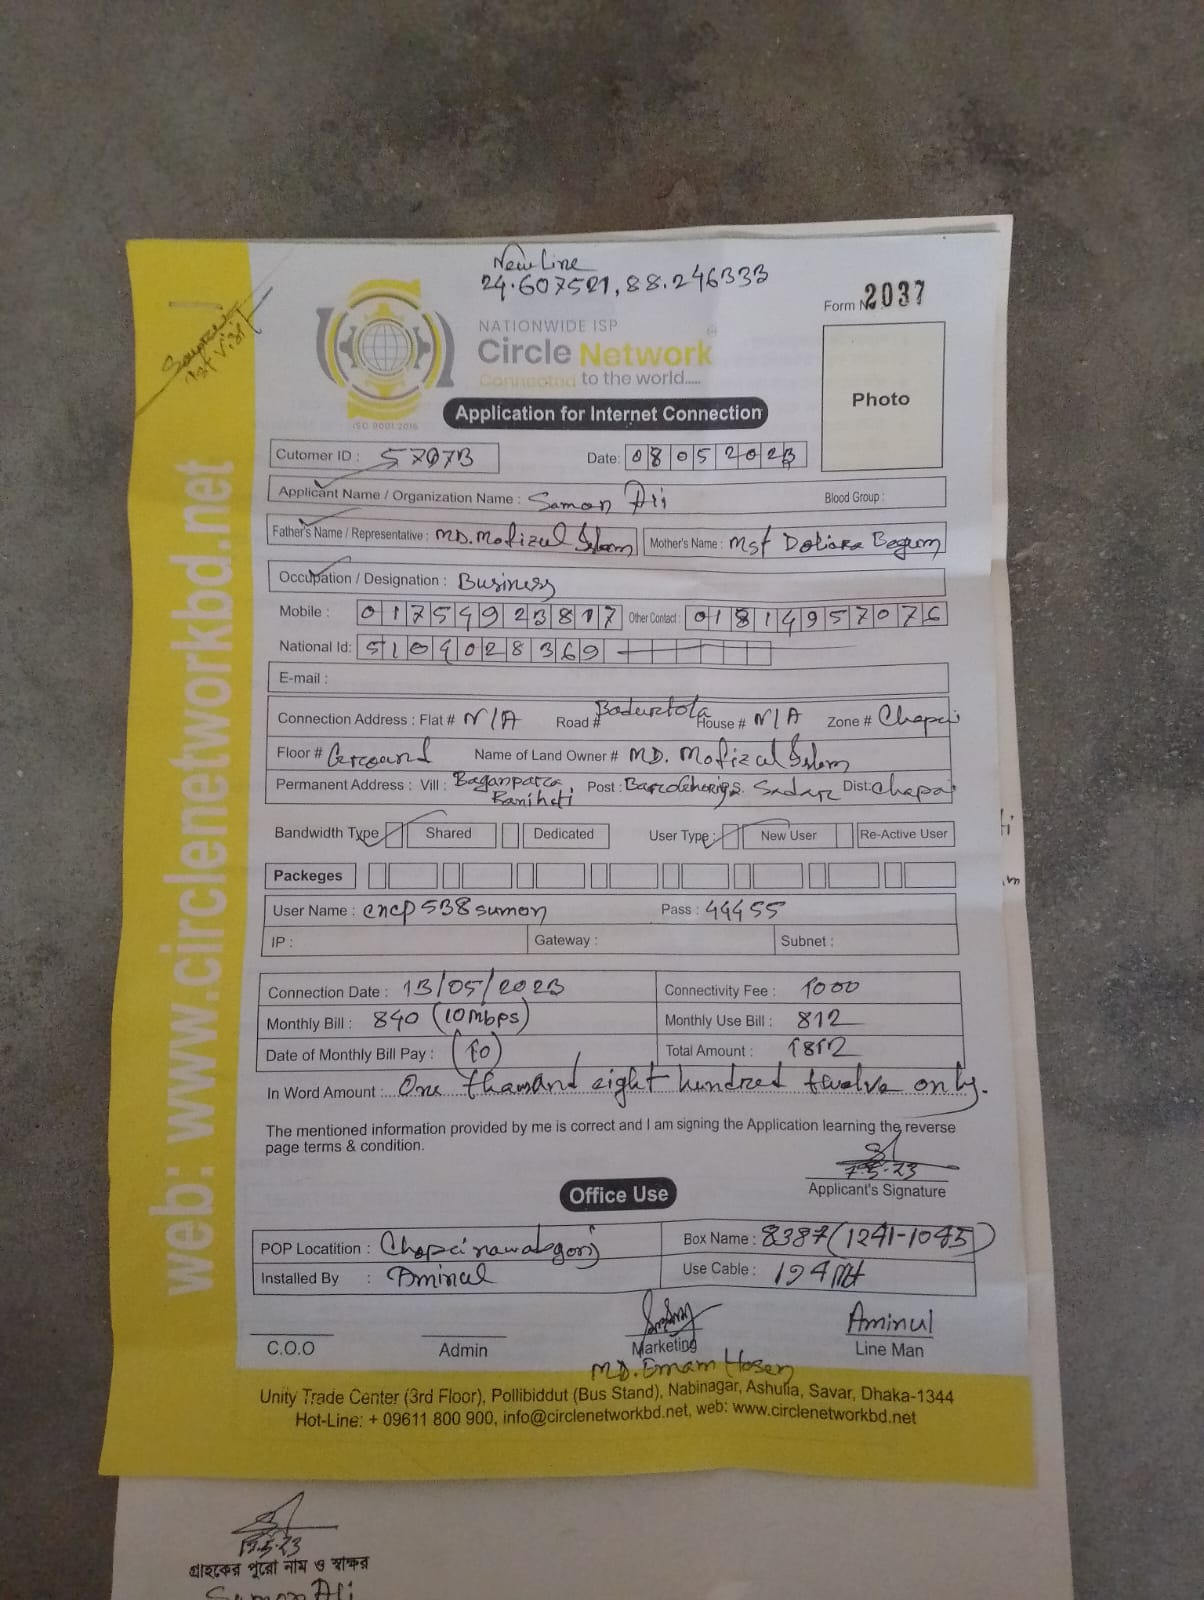 New Line
24.607521, 88.246333
Form No 2037
NATIONWIDE ISP
Circle Network
Connected to the world.....
ISO 9001:2015
Photo
Application for Internet Connection
Cutomer ID : 57073
Date: 08052023
Applicant Name / Organization Name : Samon Ali
Blood Group :
Father's Name / Representative : MD. Mofizul Islam
Mother's Name : Mst Doliara Begum
Occupation / Designation : Business
Mobile : 01754923817 Other Contact : 01814957076
National Id: 5104028369
E-mail :
Connection Address : Flat # N/A Road # Badurtola House # N/A Zone # Chapai
Floor # Ground Name of Land Owner # MD. Mofizul Islam
Permanent Address : Vill : Baganpara, Ranihati Post : Sadar Dist: Chapai
Bandwidth Type Shared Dedicated User Type: New User Re-Active User
Packeges
User Name : cncp538sumon Pass : 44455
IP : Gateway : Subnet :
Connection Date : 13/05/2023 Connectivity Fee : 1000
Monthly Bill : 840 (10mbps) Monthly Use Bill : 812
Date of Monthly Bill Pay : (10) Total Amount : 1812
In Word Amount : One thousand eight hundred twelve only.
The mentioned information provided by me is correct and I am signing the Application learning the reverse
page terms & condition.
7.5.23
Applicant's Signature
Office Use
POP Locatition : Chapainawabgonj Box Name : 8387(1241-1045)
Installed By : Aminul Use Cable : 194 Mt
Aminul
C.O.O Admin Marketing Line Man
MD. Emam Hosen
Unity Trade Center (3rd Floor), Pollibiddut (Bus Stand), Nabinagar, Ashulia, Savar, Dhaka-1344
Hot-Line: + 09611 800 900, info@circlenetworkbd.net, web: www.circlenetworkbd.net
web: www.circlenetworkbd.net
গ্রাহকের পুরো নাম ও স্বাক্ষর
Samon Ali